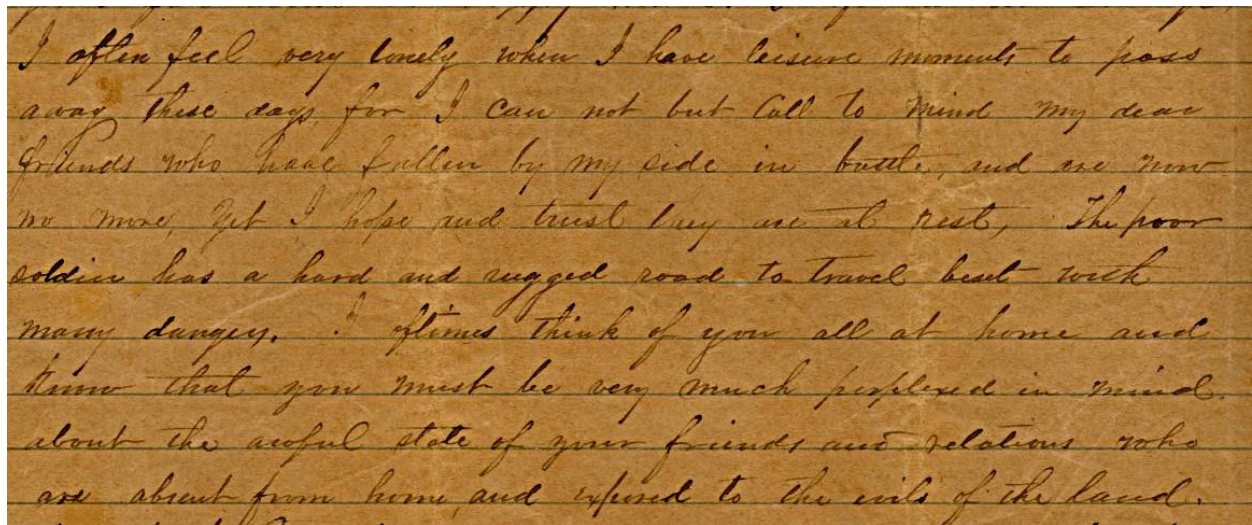 I often feel very lonely when I have leisure moments to pass
away these days, for I can not but Call to mind my dear
friends who have fallen by my side in battle, and are now
no more, Yet I hope and trust they are at rest, The poor
soldier has a hard and rugged road to travel beset with
many dangers. I oftimes think of you all at home and
know that you must be very much perplexed in mind.
about the awful state of your friends and relations who
are absent from home, and exposed to the evils of the land.